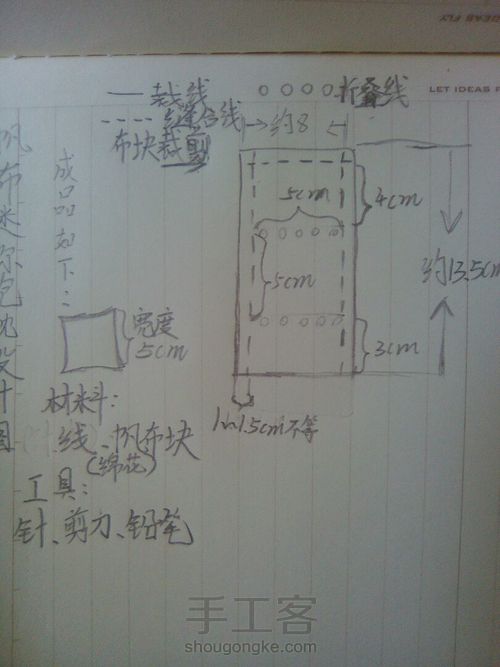 LET IDEAS F
—裁线
○○○○○折叠线
----缝合线
布块裁剪
约8
帆布迷你包枕设计图
成品如下:
5cm
4cm
5cm
约13.5cm
宽度
5cm
3cm
1~1.5cm不等
材料:
线、帆布块
(绵花)
工具:
针、剪刀、铅笔
手工客
shougongke.com